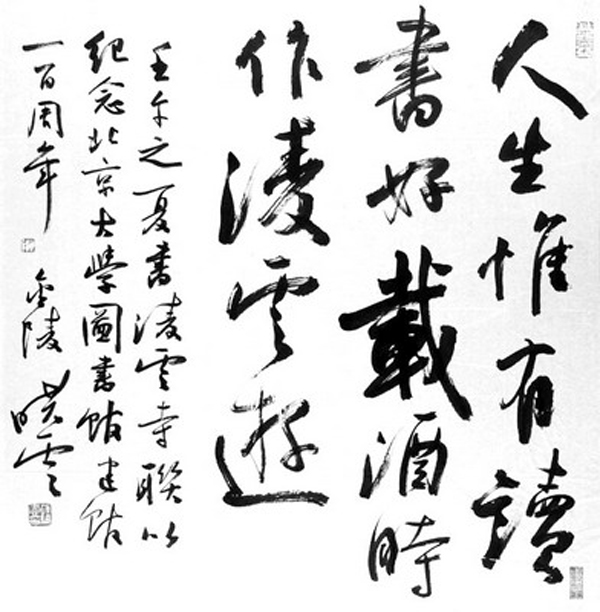 人生惟有讀
書好載酒時
作凌云遊
壬午之夏書凌雲寺聯以
紀念北京大學圖書館建館
一百周年
金陵曉雲